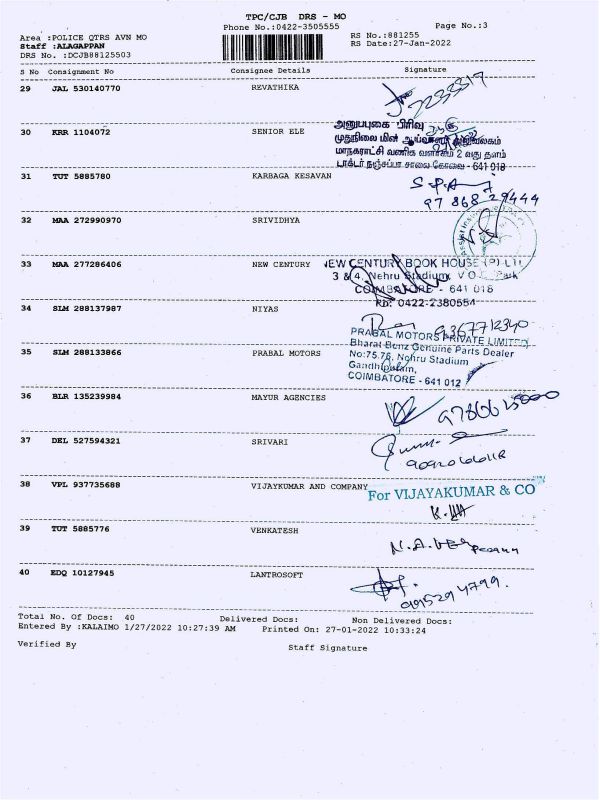 TPC/CJB DRS - MO
Phone No.:0422-3505555
Page No.:3
Area :POLICE QTRS AVN MO
RS No.:881255
Staff :ALAGAPPAN
RS Date:27-Jan-2022
DRS No. :DCJB88125503
S No Consignment No Consignee Details Signature
29 JAL 530140770 REVATHIKA
30 KRR 1104072 SENIOR ELE
அனுப்புகை பிரிவு
முதுநிலை மின் ஆய்வாளர் அலுவலகம்
மாநகராட்சி வணிக வளாகம் 2 வது தளம்
டாக்டர் நஞ்சப்பா சாலை கோவை - 641 018
31 TUT 5885780 KARBAGA KESAVAN
97868 29444
32 MAA 272990970 SRIVIDHYA
33 MAA 277286406 NEW CENTURY
NEW CENTURY BOOK HOUSE (P) LTD
3 & 4, Nehru Stadium, V.O.C. Park
COIMBATORE - 641 018
Ph: 0422-2380554
34 SLM 288137987 NIYAS
9367712340
35 SLM 288133866 PRABAL MOTORS
PRABAL MOTORS PRIVATE LIMITED,
Bharat Benz Genuine Parts Dealer
No:75,76, Nehru Stadium
Gandhipuram,
COIMBATORE - 641 012
36 BLR 135239984 MAYUR AGENCIES
37 DEL 527594321 SRIVARI
38 VPL 937735688 VIJAYKUMAR AND COMPANY
For VIJAYAKUMAR & CO
39 TUT 5885776 VENKATESH
40 EDQ 10127945 LANTROSOFT
9952947799.
Total No. Of Docs: 40 Delivered Docs: Non Delivered Docs:
Entered By :KALAIMO 1/27/2022 10:27:39 AM Printed On: 27-01-2022 10:33:24
Verified By Staff Signature